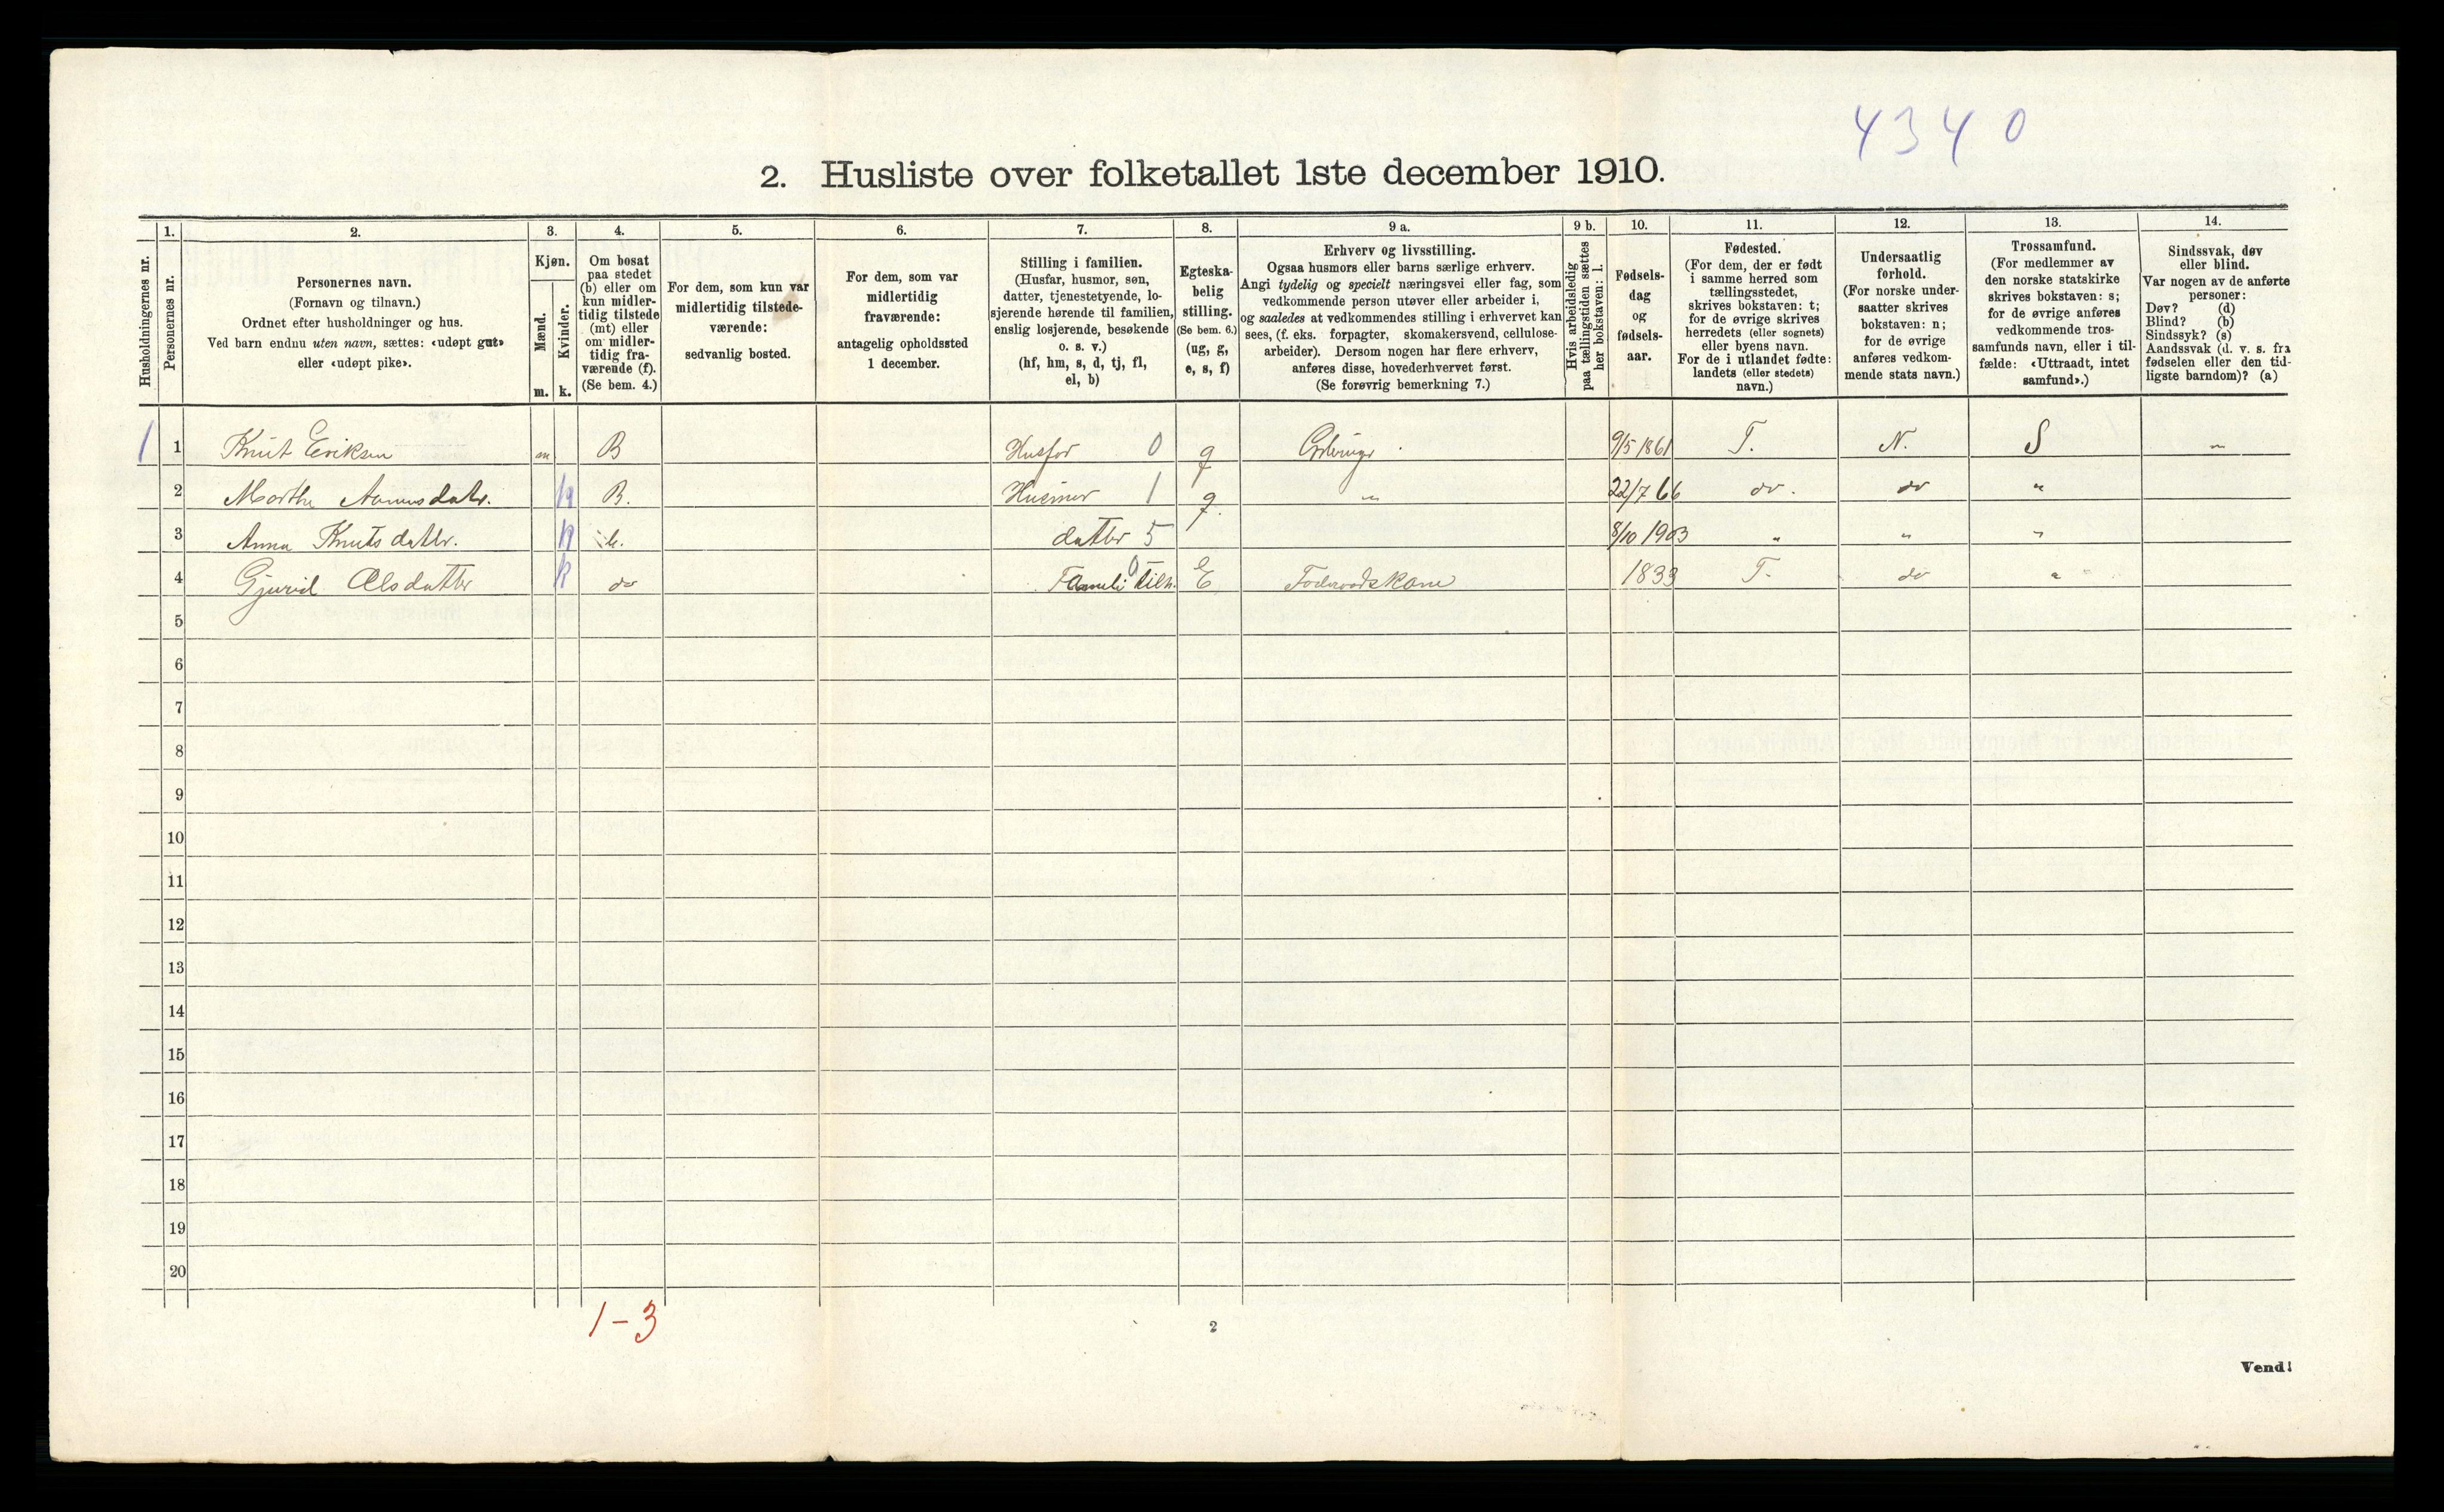 4340
2. Husliste over folketallet 1ste december 1910.
Husholdningernes nr.
1.
Personernes nr.
2.
Personernes navn.
(Fornavn og tilnavn.)
Ordnet efter husholdninger og hus.
Ved barn endnu uten navn, sættes: «udøpt gut»
eller «udøpt pike».
3.
Kjøn.
Mænd.
Kvinder.
m. k.
4.
Om bosat
paa stedet
(b) eller om
kun midler-
tidig tilstede
(mt) eller
om midler-
tidig fra-
værende (f).
(Se bem. 4.)
5.
For dem, som kun var
midlertidig tilstede-
værende:
sedvanlig bosted.
6.
For dem, som var
midlertidig
fraværende:
antagelig opholdssted
1 december.
7.
Stilling i familien.
(Husfar, husmor, søn,
datter, tjenestetyende, lo-
sjerende hørende til familien,
enslig losjerende, besøkende
o. s. v.)
(hf, hm, s, d, tj, fl,
el, b)
8.
Egteska-
belig
stilling.
(Se bem. 6.)
(ug, g,
e, s, f)
9 a.
Erhverv og livsstilling.
Ogsaa husmors eller barns særlige erhverv.
Angi tydelig og specielt næringsvei eller fag, som
vedkommende person utøver eller arbeider i,
og saaledes at vedkommendes stilling i erhvervet kan
sees, (f. eks. forpagter, skomakersvend, cellulose-
arbeider). Dersom nogen har flere erhverv,
anføres disse, hovederhvervet først.
(Se forøvrig bemerkning 7.)
9 b.
Hvis arbeidsledig
paa tællingstiden sættes
her bokstaven: l.
10.
Fødsels-
dag
og
fødsels-
aar.
11.
Fødested.
(For dem, der er født
i samme herred som
tællingsstedet,
skrives bokstaven: t;
for de øvrige skrives
herredets (eller sognets)
eller byens navn.
For de i utlandet fødte:
landets (eller stedets)
navn.)
12.
Undersaatlig
forhold.
(For norske under-
saatter skrives
bokstaven: n;
for de øvrige
anføres vedkom-
mende stats navn.)
13.
Trossamfund.
(For medlemmer av
den norske statskirke
skrives bokstaven: s;
for de øvrige anføres
vedkommende tros-
samfunds navn, eller i til-
fælde: «Uttraadt, intet
samfund».)
14.
Sindssvak, døv
eller blind.
Var nogen av de anførte
personer:
Døv? (d)
Blind? (b)
Sindssyk? (s)
Aandssvak (d. v. s. fra
fødselen eller den tid-
ligste barndom)? (a)
1 1 Knut Eriksen m B Husfar 0 g 9/5 1861 T. N. S "
2 Marthe datr. k B. Husmor 1 g " 22/7 66 do. do "
3 Anna Knutsdatter. k b. datter 5 8/10 1903 " " "
4 Gjurid Olsdatter k do 0 E 1833 T. do "
5
6
7
8
9
10
11
12
13
14
15
16
17
18
19
20
1-3
2
Vend!